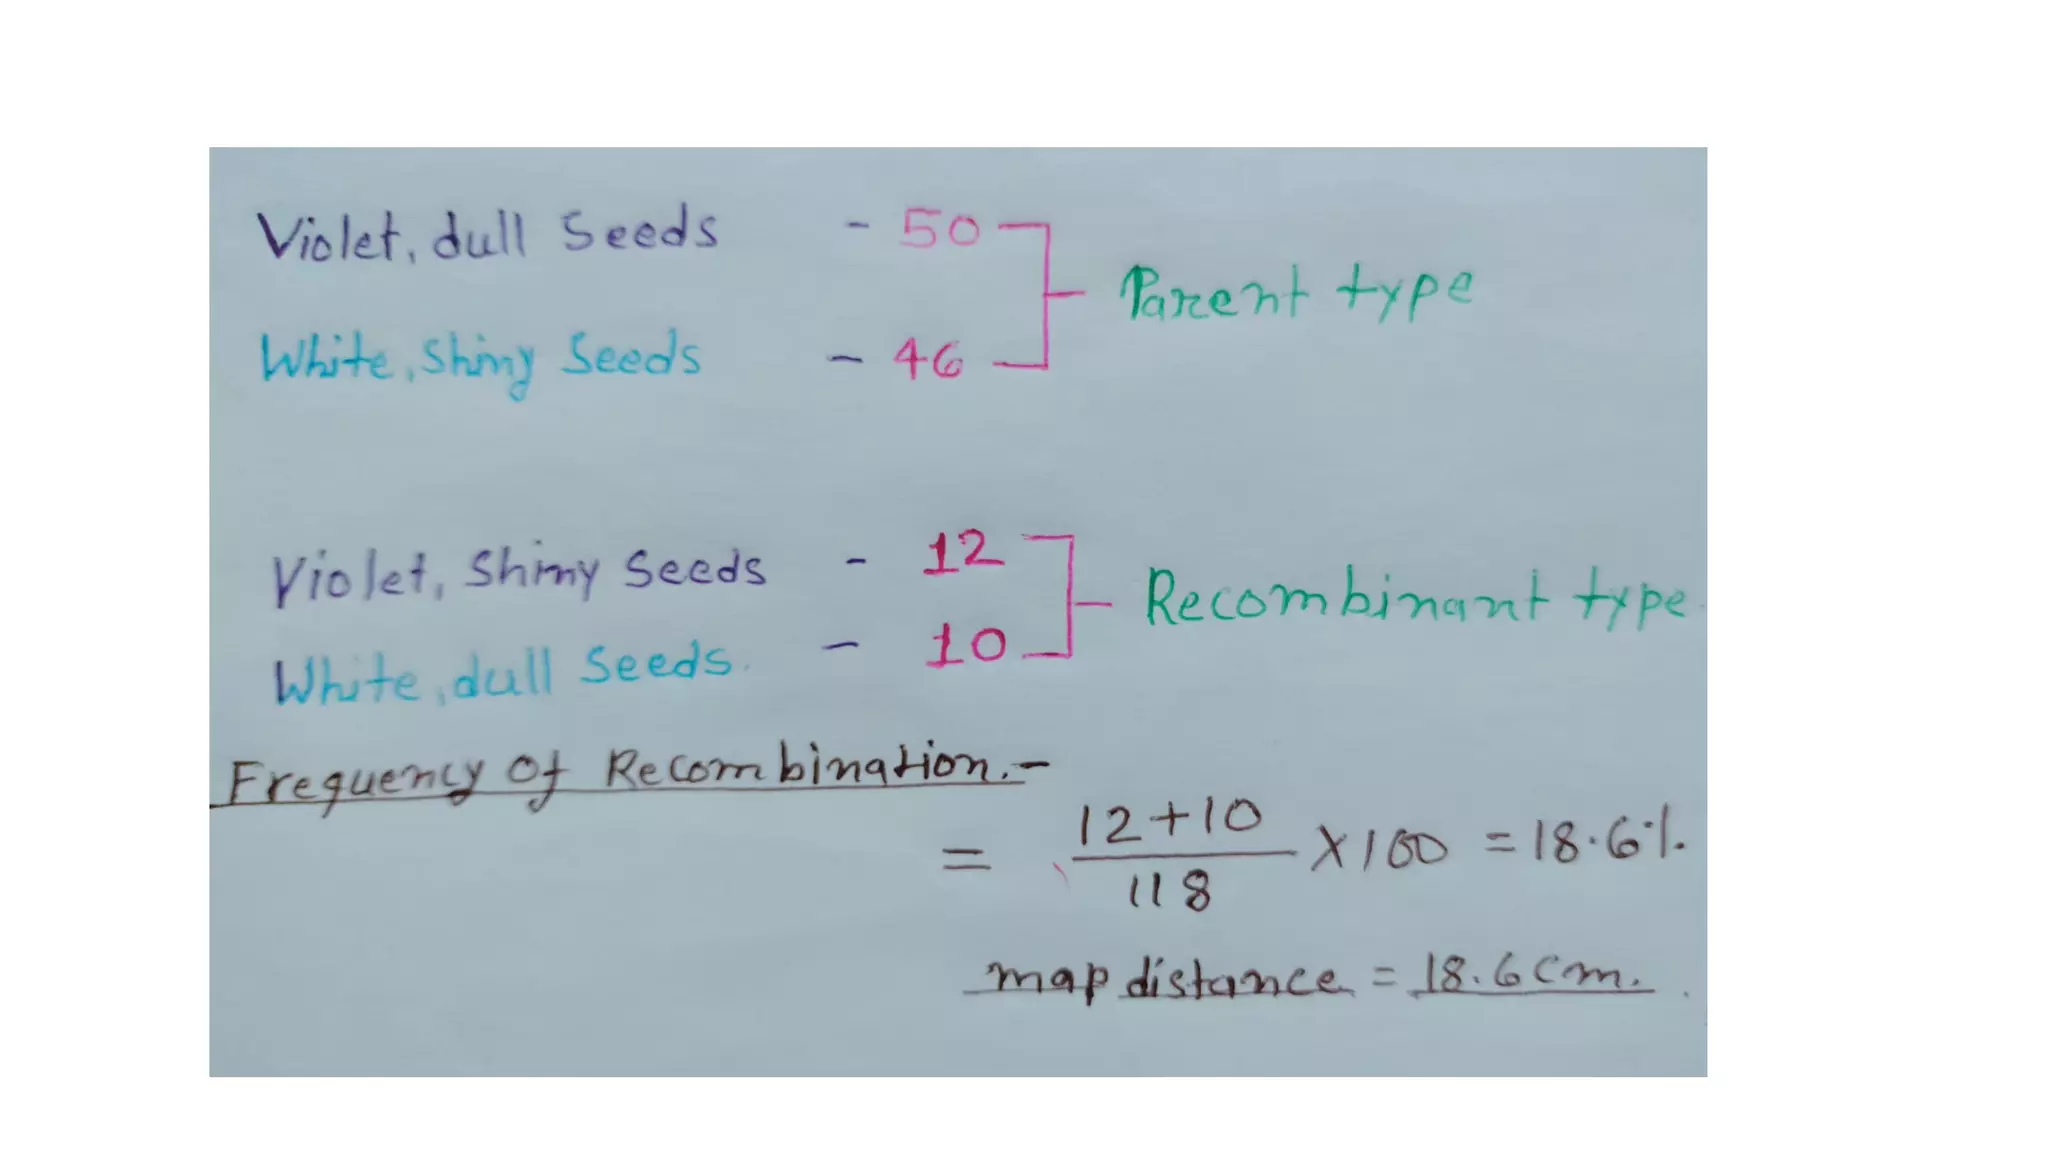 Violet, dull Seeds - 50
Parent type
White, Shiny Seeds - 46
Violet, Shiny Seeds - 12
Recombinant type
White, dull Seeds. - 10
Frequency of Recombination.-
= 12+10/118 X100 = 18.6%.
map distance = 18.6 cm.